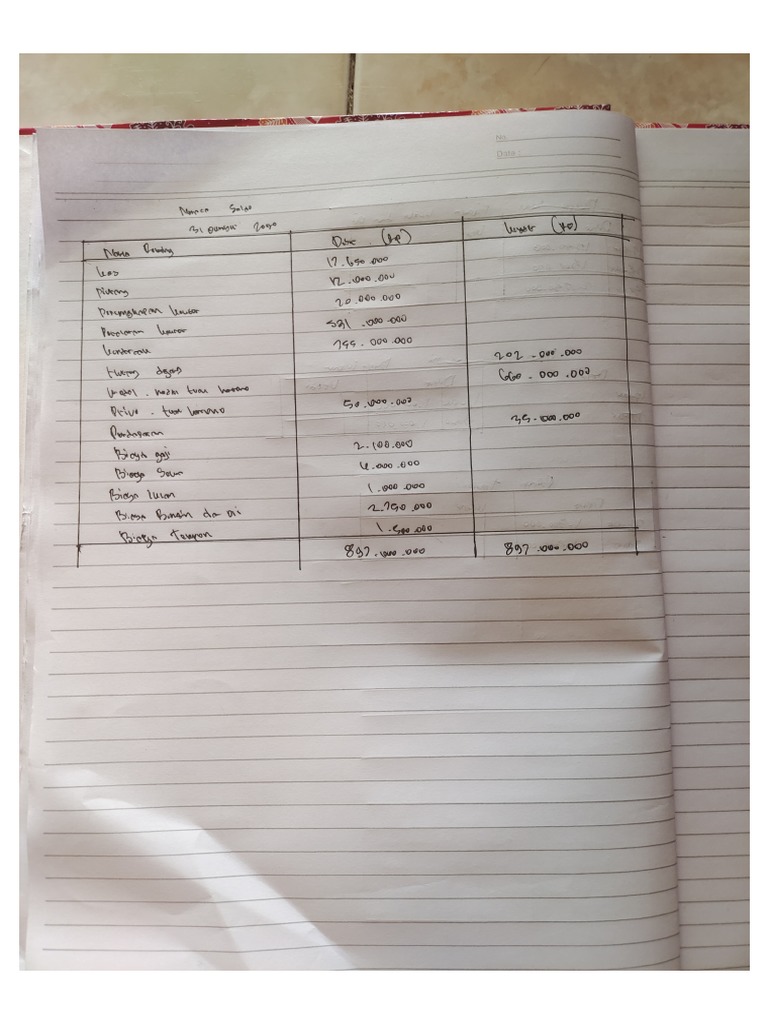 No.
Date :
Neraca Saldo
31 2020
Nama Debit (Rp) Kredit (Rp)
Kas 17.650.000
Piutang 12.000.000
Perlengkapan kantor 20.000.000
Peralatan kantor 531.000.000
Kendaraan 255.000.000
202.000.000
Modal 660.000.000
Prive - tuan 50.000.000
Pendapatan 35.000.000
Biaya gaji 2.100.000
Biaya Sewa 4.000.000
Biaya Iklan 1.000.000
Biaya Bensin dan Oli 2.750.000
Biaya Telepon 1.500.000
897.000.000 897.000.000